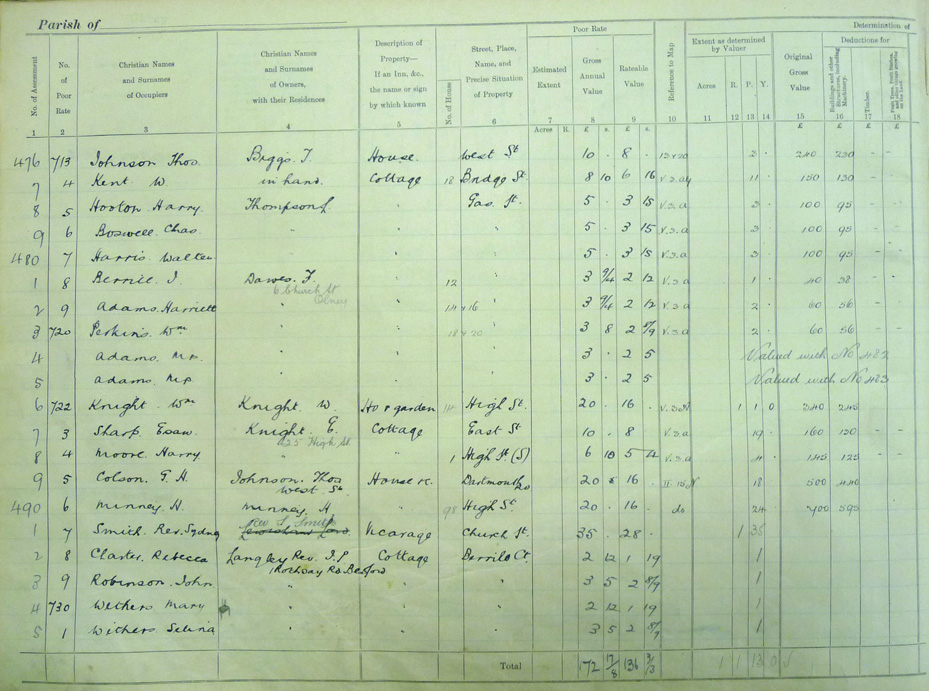 Parish of
Determination of
No. of Assessment
No. of Poor Rate
Christian Names and Surnames of Occupiers
Christian Names and Surnames of Owners, with their Residences
Description of Property— If an Inn, &c., the name or sign by which known
No. of House
Street, Place, Name, and Precise Situation of Property
Poor Rate
Estimated Extent
Gross Annual Value
Rateable Value
Reference to Map
Extent as determined by Valuer
Original Gross Value
Deductions for
Buildings and other Structures, including Machinery.
Timber.
1 2 3 4 5 6 7 8 9 10 11 12 13 14 15 16 17 18
Acres R. £ s. £ s. Acres R. P. Y. £ £ £ £
476 713 Johnson Thos. Biggs. T. House. West St 10 . 8 . 240 230
7 4 Kent W. in hand. Cottage 18 Bridge St. 8 10 6 16 11 . 150 130
8 5 Hooton Harry. Thompson Gas. St. 5 . 3 15 V.3.a 3 . 100 95 - -
9 6 Boswell Chas. " " 5 . 3 15 V.3.a 3 . 100 95 - -
480 7 Harris Walter " " 5 . 3 15 V.3.a 3 100 95 - -
1 8 Dawes. F. " 12 3 9/4 2 12 V.3.a 1 . 40 38 - -
6 Church St
Olney
2 9 Adams. Harriett " " 14 & 16 " 3 9/4 2 12 V.3.a 2 . 60 56 - -
3 720 Perkins. Wm " " 18 & 20 " 3 8 2 V.3.a 2 . 60 56 - -
4 Adams. Mr. " " " 3 . 2 5 Valued with No 482
5 Adams. Mr. " " " 3 . 2 5 Valued with No 483
6 722 Knight. Wm Knight. W. Ho & garden High St. 20 . 16 . 1 1 0 340 245
7 3 Sharp. Esau. Knight. E. Cottage East St 10 . 8 . V.3.a 19 . 160 130 - -
25 High St
8 4 Moore. Harry " " 1 High St (S) 6 10 5 4 V.3.a 4 . 145 125 - -
9 5 Colson. G. H. Johnson. Thos House &c. Dartmouth Rd 20 . 16 . 18 500 440
West. St.
490 6 Minney. H. Minney. H " 98 High St. 20 . 16 . do 24 700 595
Rev. S. Smith
1 7 Smith. Rev. Sydney Vicarage Church St. 35 . 28 . 1 35
2 8 Clarke. Rebecca Langley Rev. J.P. Cottage Berrills Ct. 2 12 1 19 1
Rothsay Rd. Bedford
3 9 Robinson. John " " 3 5 2 8/9 1
4 730 Withers Mary " " 2 12 1 19 1
5 1 Withers. Selina " " 3 5 2 1
Total 172 17/8 136 3/3 1 1 13 0